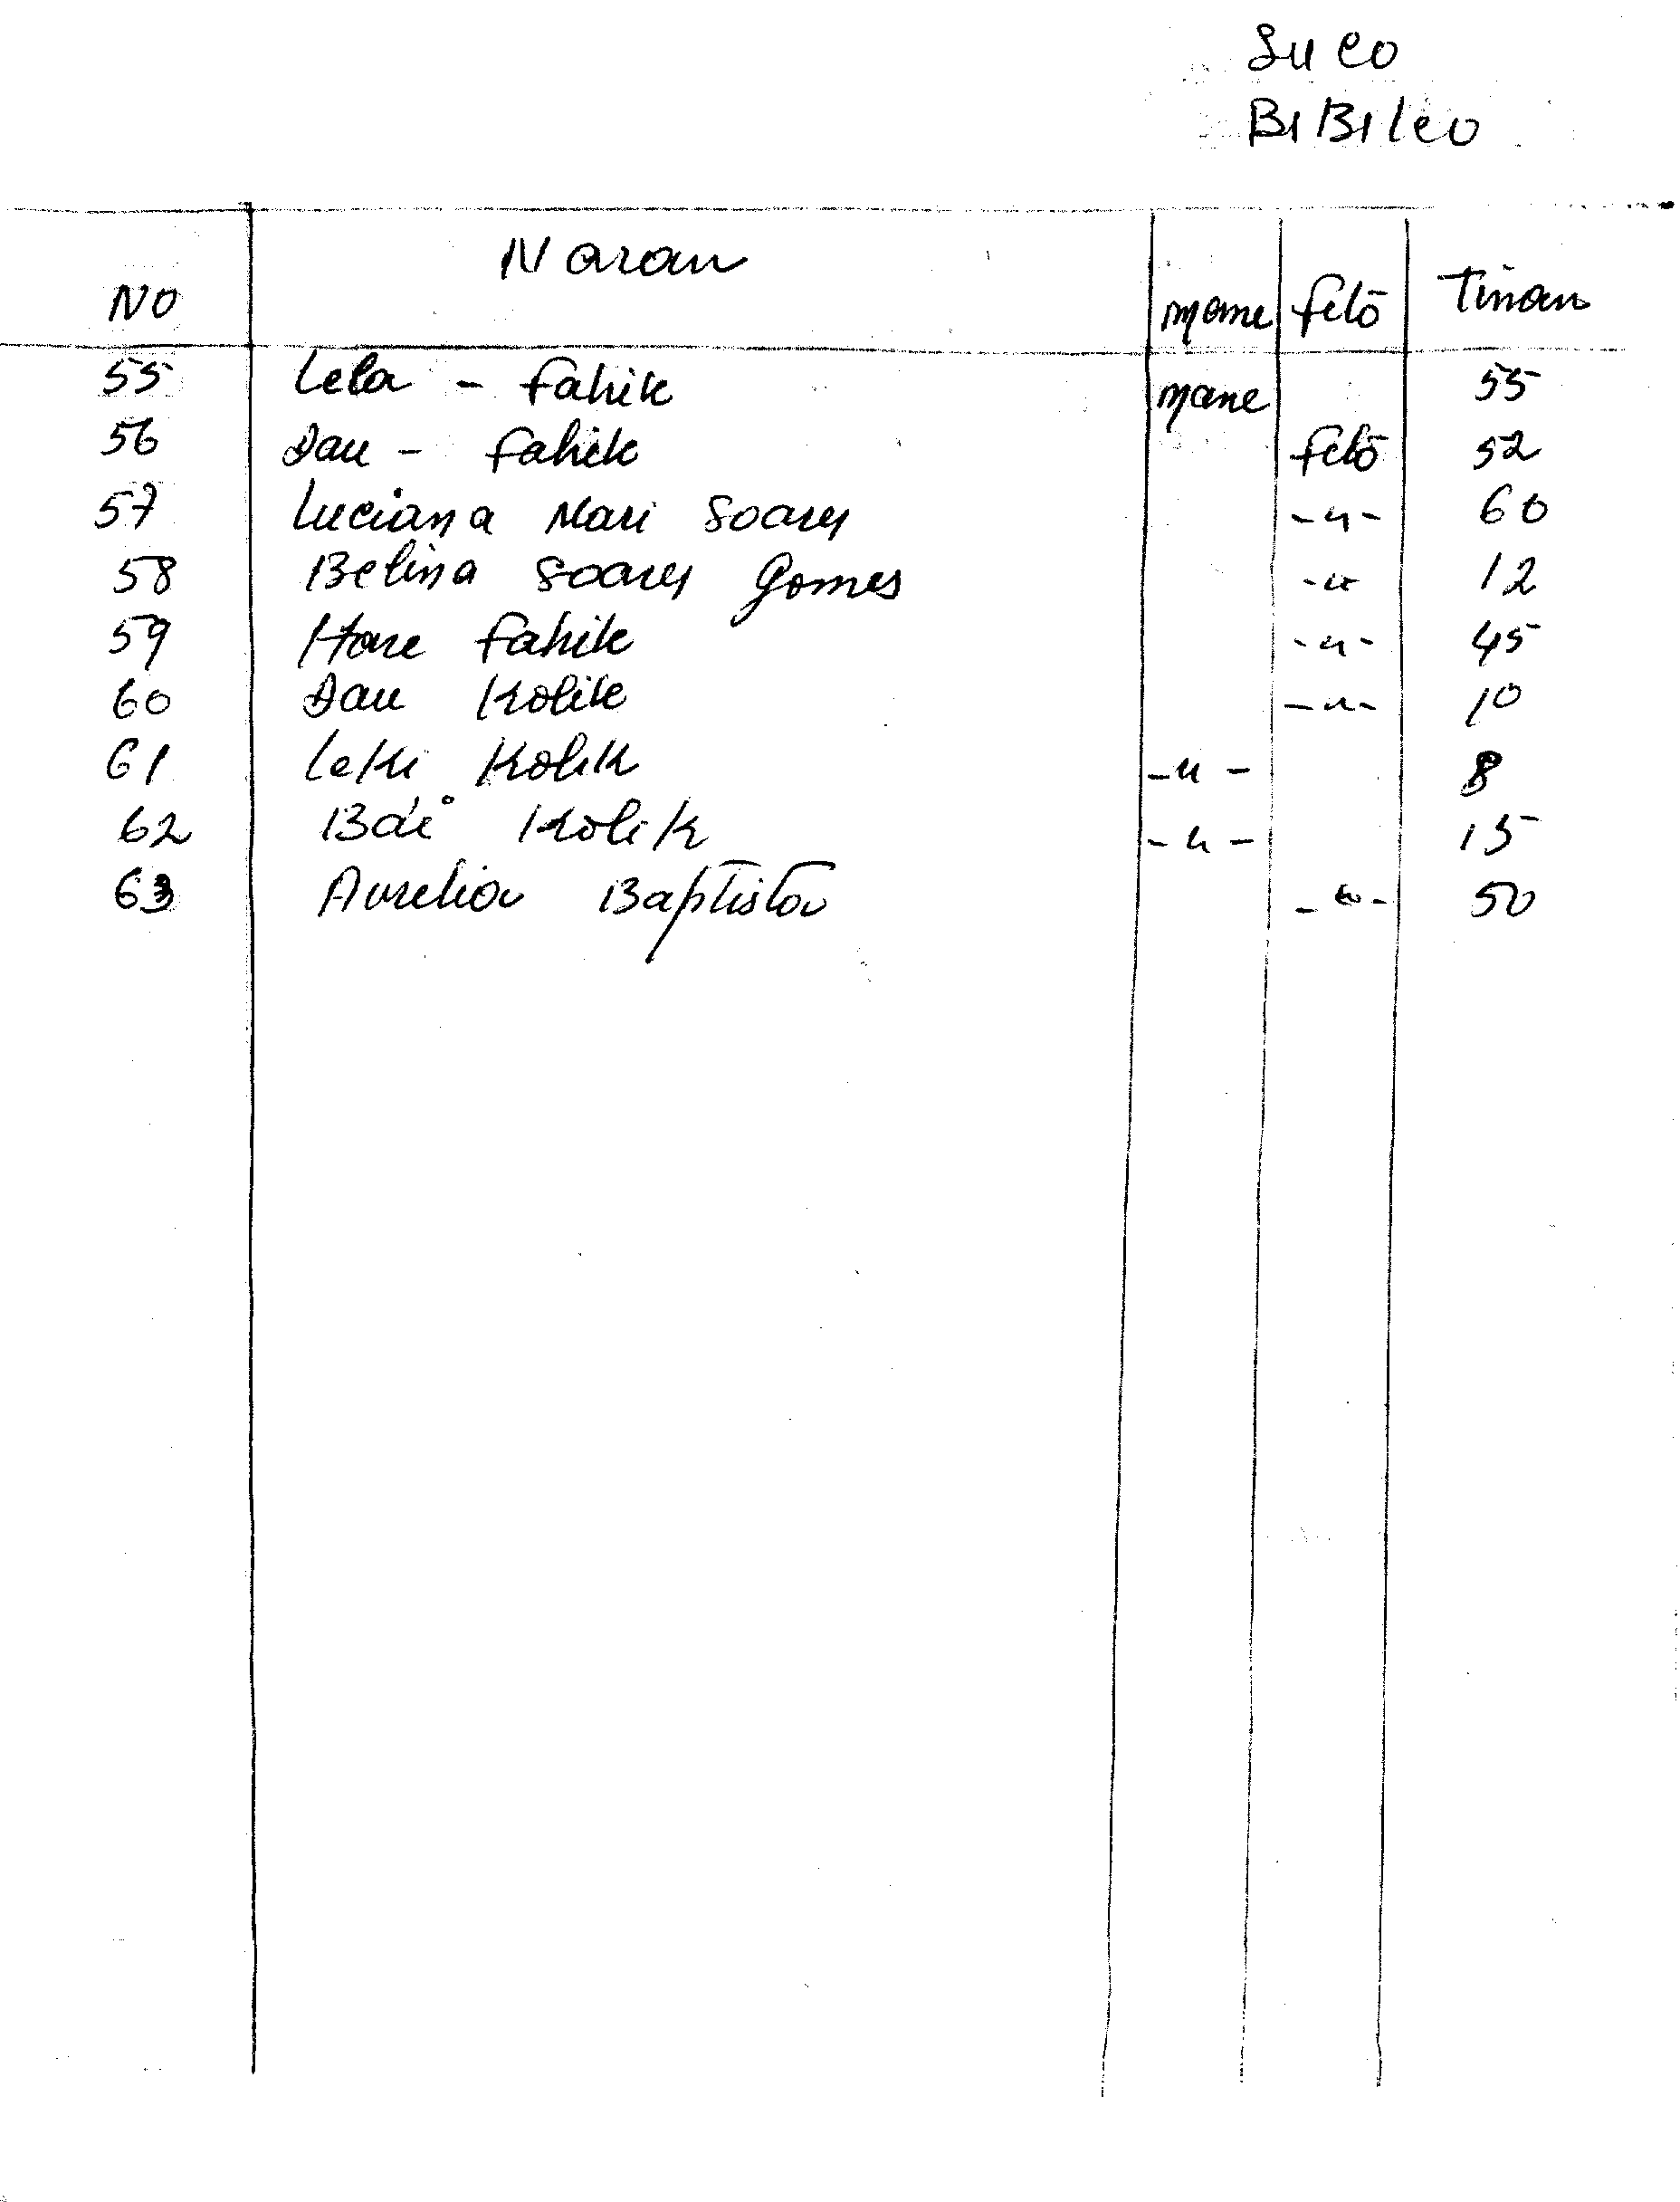 Suco
BIBILEO
No Naran mane fetō Tinan
55 Lela - fahik mane 55
56 Dau - fahik fetō 52
57 Luciana Mari Soares -"- 60
58 Belina Soares Gomes -" 12
59 Hare fahik -"- 45
60 Dau Kolik -"- 10
61 Leki Kolik -"- 8
62 Kolik -"- 15
63 Aurelia Baptista -"- 50